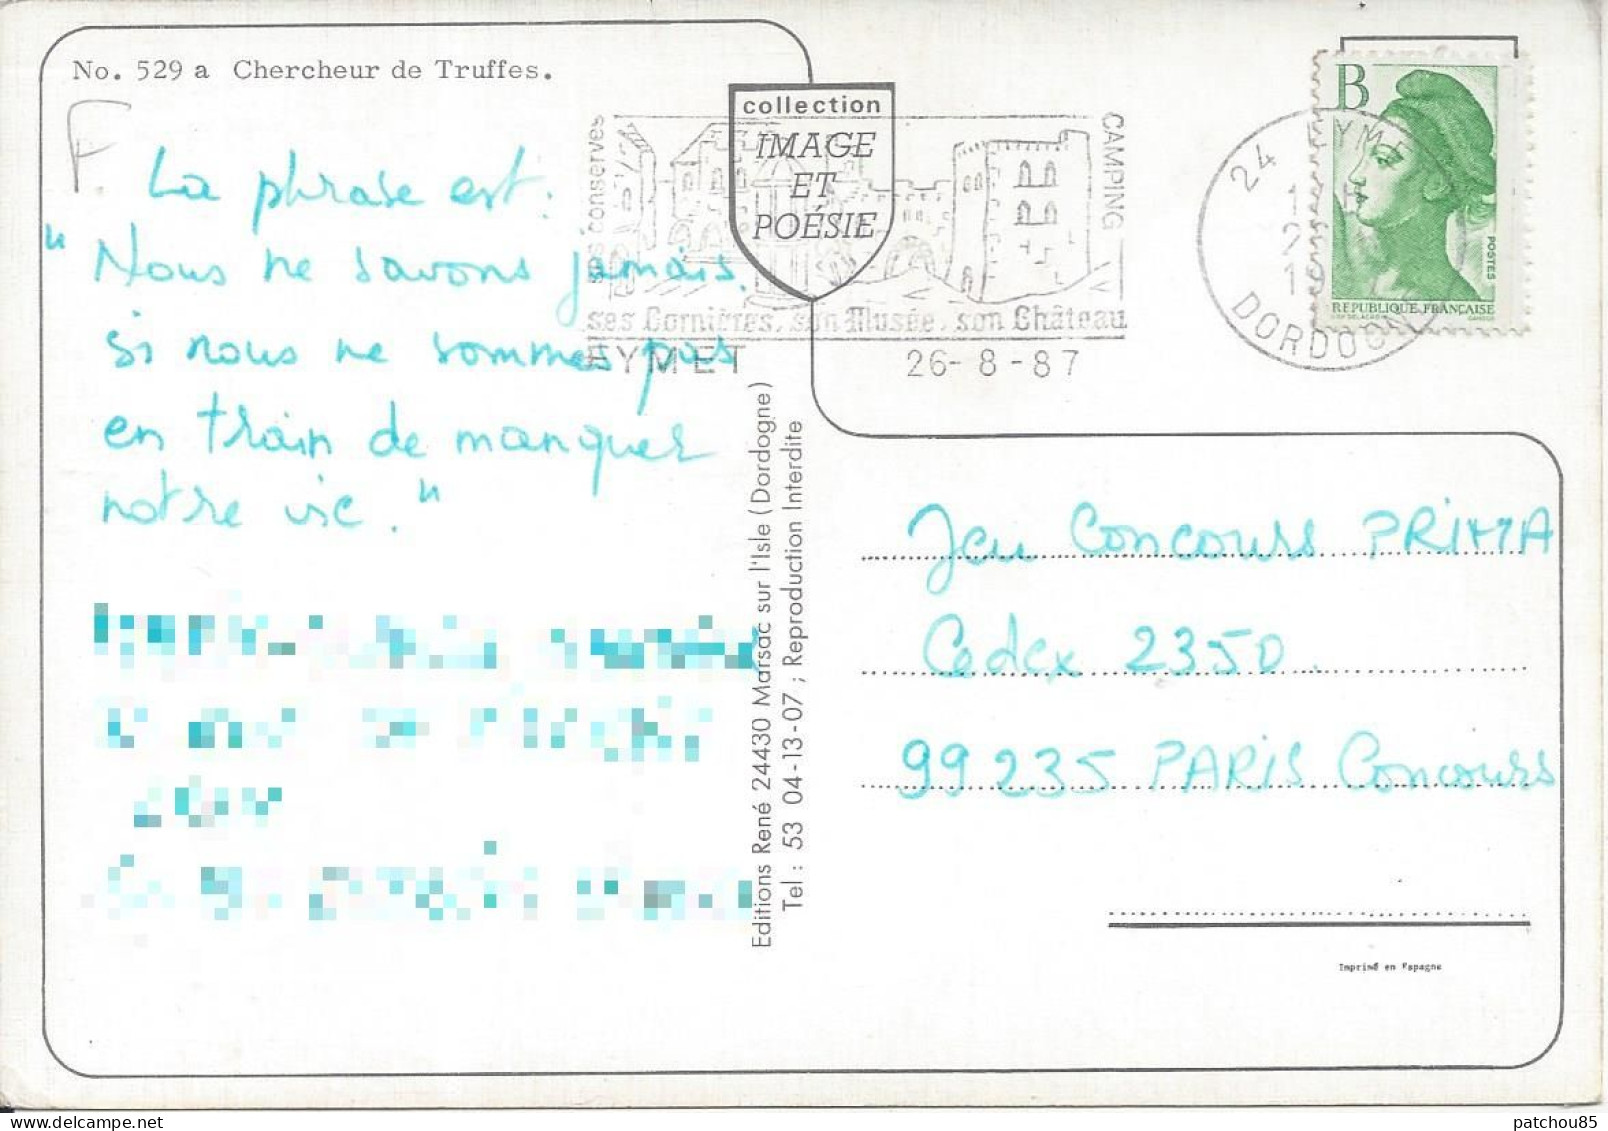 No. 529 a Chercheur de Truffes.
F.
La phrase est :
"Nous ne savons jamais.
si nous ne sommes pas
en train de manquer
notre vie."
collection
IMAGE
ET
POÉSIE
ses conserves
CAMPING
ses Cornières, son Musée, son Château
EYMET
26-8-87
24
DORDOGNE
B
POSTES
REPUBLIQUE FRANÇAISE
Editions René 24430 Marsac sur l'Isle (Dordogne)
Tel : 53 04-13-07 ; Reproduction Interdite
Jeu Concours PRIMA
Cedex 2350.
99235 PARIS Concours
Imprimé en Espagne
patchou85